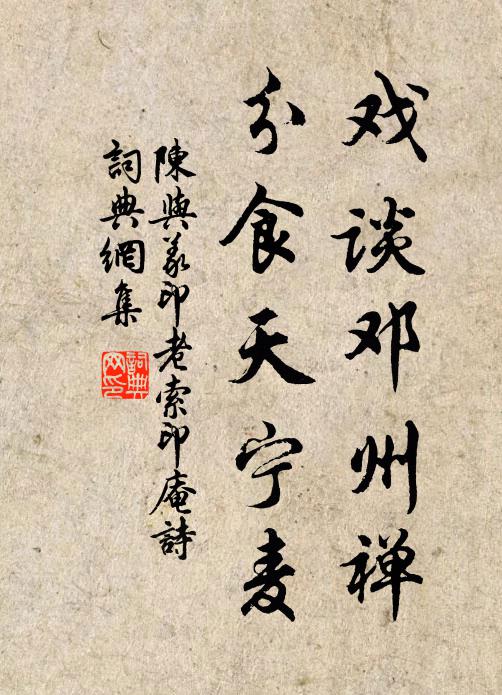 戏谈邓州禅
分食天宁麦
陳與義印老索印庵詩
詞典網集
詞典網印